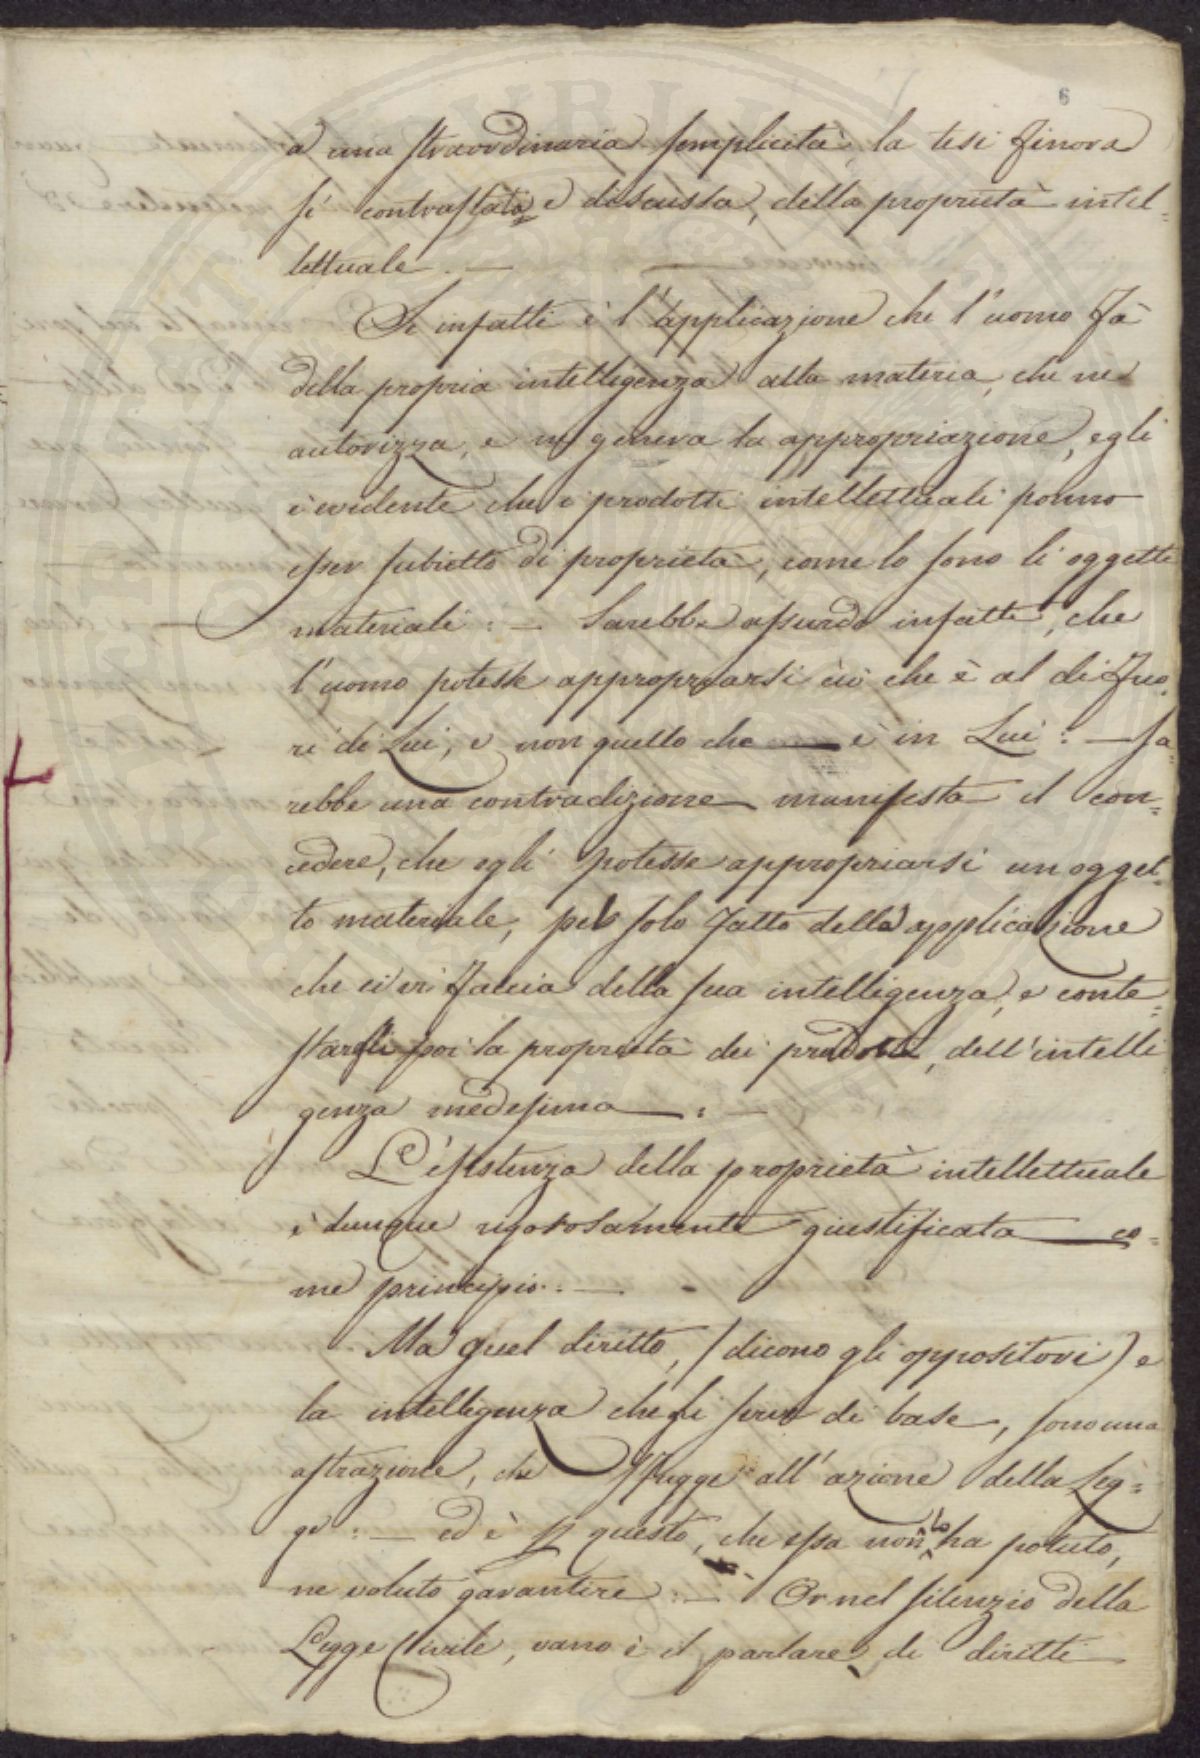 6
a una straordinaria semplicità, la tesi finora
sì contrastata e discussa, della proprietà intel=
lettuale. —
Se infatti è l'applicazione che l'uomo fà
della propria intelligenza alla materia, che ne
autorizza, e ne genera la appropriazione, egli
è evidente che i prodotti intellettuali ponno
esser subietto di proprietà, come lo sono li oggetti
materiali: — Sarebbe assurdo infatti, che
l'uomo potesse appropriarsi ciò che è al di fuo=
ri di Lui, e non quello che — è in Lui: — Sa=
rebbe una contradizione manifesta il con=
cedere, che egli potesse appropriarsi un ogget=
to materiale, pel solo fatto della applicazione
che ei vi faccia della sua intelligenza, e conte=
stargli poi la proprietà dei prodotti, dell'intelli
genza medesima: —
L'esistenza della proprietà intellettuale
è dunque rigorosamente giustificata co=
me principio: —
Ma quel diritto, (dicono gli oppositori) e
la intelligenza che li serve di base, sono una
astrazione, che sfugge all'azione della Leg=
ge: — ed è p questo, che essa non lo ha potuto,
ne voluto garantire: — Or nel silenzio della
Legge Civile, vano è il parlare di diritti